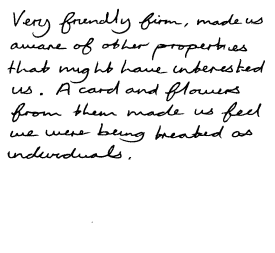 Very friendly firm, made us
aware of other properties
that might have interested
us. A card and flowers
from them made us feel
we were being treated as
individuals.